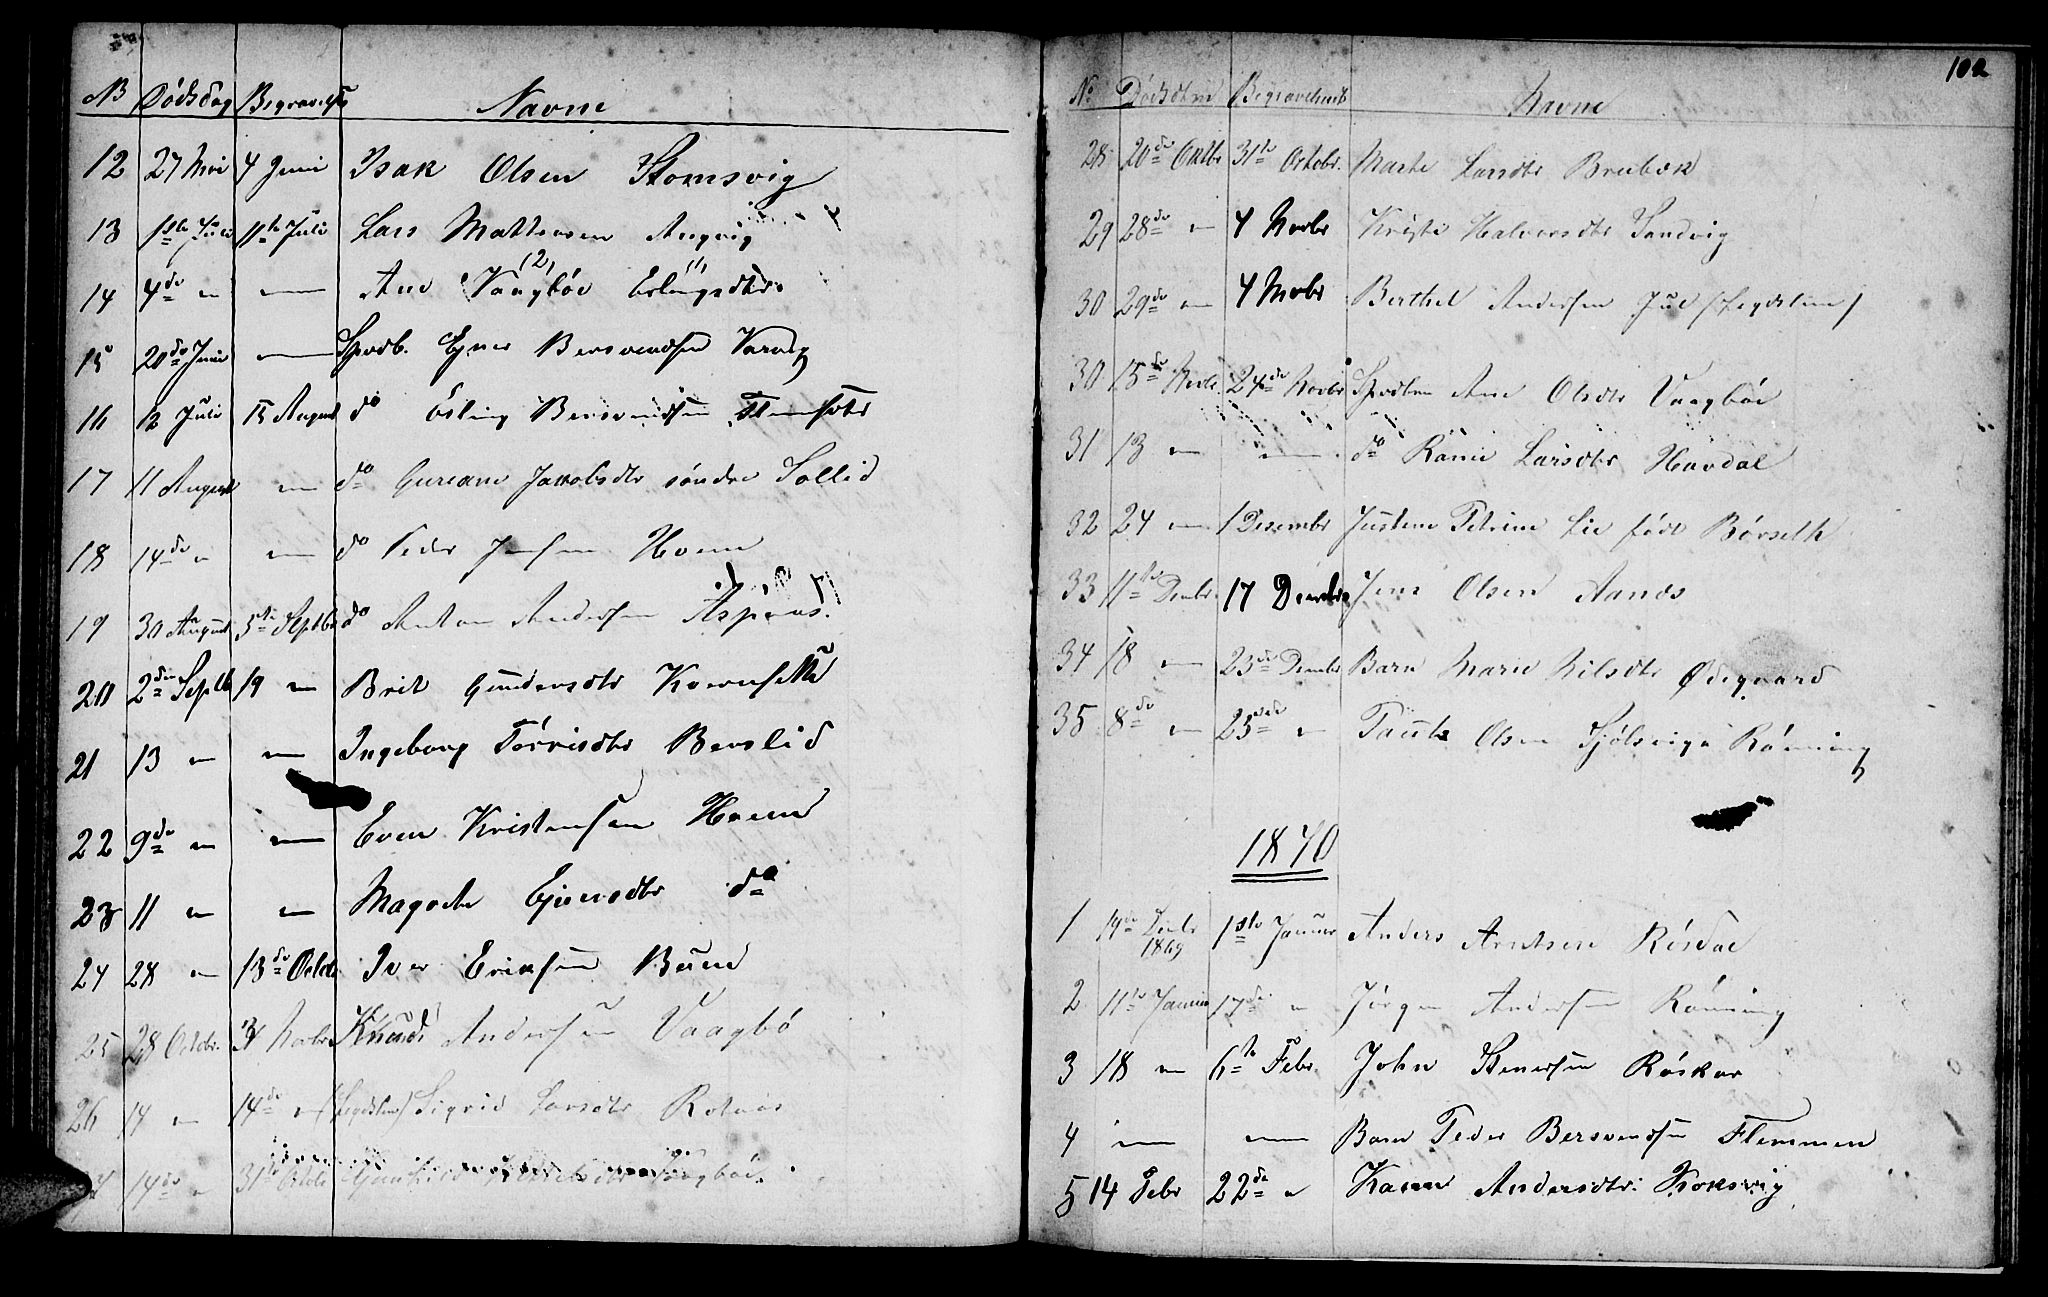 № Dödsdag Begravelses Navne
12 27 Mai 4 Juni Isak Olsen Stomsvig
13 1ste Juli 11te Juli Lars Mattersen Angvig
14 4de " — Ane Vaagböe Erlingsdtr.
15 20de Juni — Spædb. Ejner Bersvendsen Varvig
16 12 Juli 15 August do Erling Bersvendsen
17 11 August — do Gureane Jakobsdtr söndre Sollid
18 14de " — do Peder Jensen Hoem
19 30 August 5te Septbr do Anton Andersen Aspenes.
20 2den Septb 19 — Brit Gundersdtr Kvernsette
21 13 — — Ingeborg Törrisdtr Berslid
22 9de — — Even Kristensen Hoem
23 11 — — Magrete Ejversdtr do
24 28 — 13de Octob Iver Eriksen Buen
25 28 Octobr. 3 Novbr Knud Andersen Vaagbö
26 14 — 14de " (Legdslem) Sigrid Larsdtr
14de " 31te Octob Vaagböe.
102
No Dödsdtm Begravelses Navne
28 20de Oktbr 31te Octobr. Marte Larsdtr Brubæk
29 28de — 4 Novbr Kristi Halvorsdtr Sandvig
30 29de — 4 Novbr Berthel Andersen Jul (Legdslem)
30 15de Novbr 24de Novbr Spædbrn Ane Olsdtr Vaagböe
31 13 — — do Ranie Larsdtr Havdal
32 24 — 1 Desembr Justine Petrine Lie födt Börseth
33 11te Decbr. 17 Decmbr Jens Olsen Aanæs
34 18 — 23de Decmbr Barn Marie Nilsdtr Ødegaard
35 8de — 23de " Olsen Sjölsvigs Rönning
1870
1 19de Decbr 1869 1ste Januar Anders Arntsen Rösdal
2 11te Januar 17de " Jörgen Andersen Rönning
3 18 — 6te Febr. John Stenersen Röskar
4 — — Barn Peder Bersvendsen Flemmen
5 14 Febr 22de " Karen Andersdtr. Koksvig